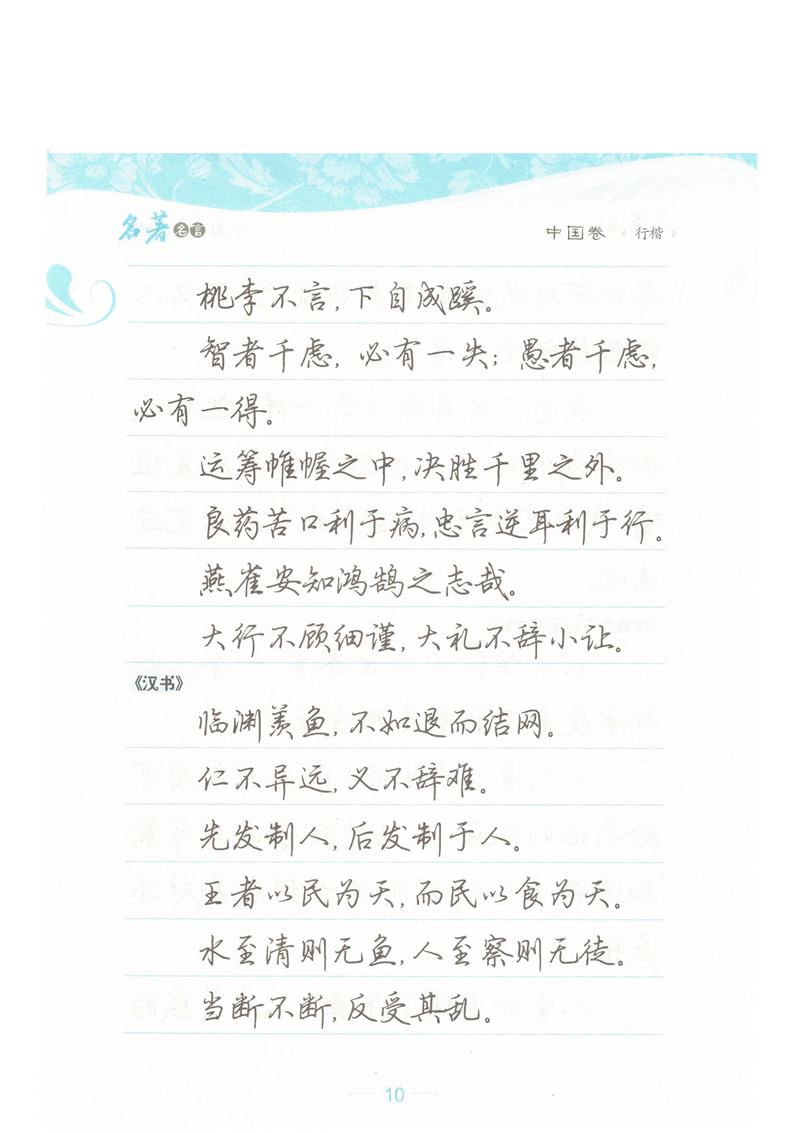 名著名言
中国卷 行楷
桃李不言，下自成蹊。
智者千虑，必有一失；愚者千虑，
必有一得。
运筹帷幄之中，决胜千里之外。
良药苦口利于病，忠言逆耳利于行。
燕雀安知鸿鹄之志哉。
大行不顾细谨，大礼不辞小让。
《汉书》
临渊羡鱼，不如退而结网。
仁不异远，义不辞难。
先发制人，后发制于人。
王者以民为天，而民以食为天。
水至清则无鱼，人至察则无徒。
当断不断，反受其乱。
10